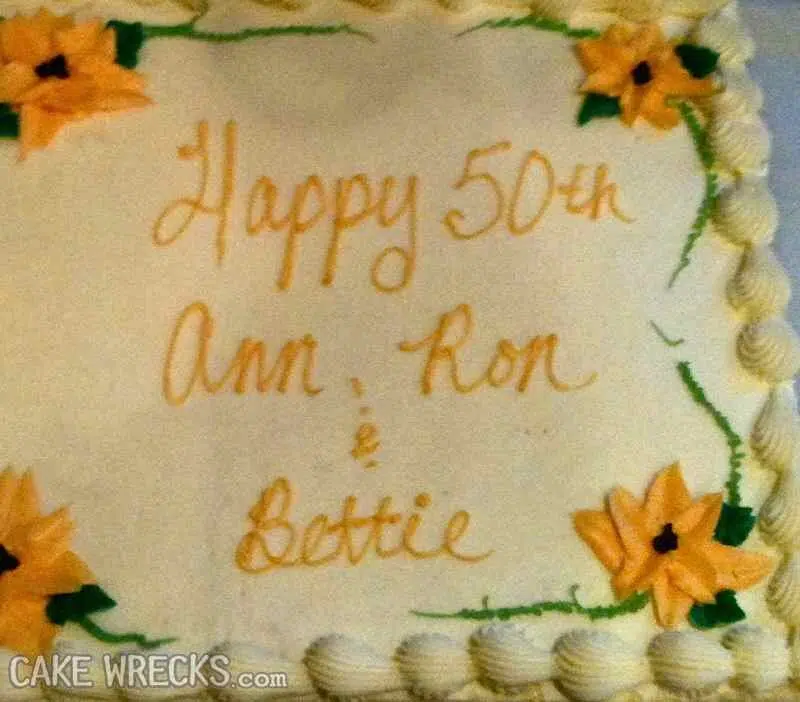 Happy 50th
Ann, Ron
&
Bettie
CAKE WRECKS.com